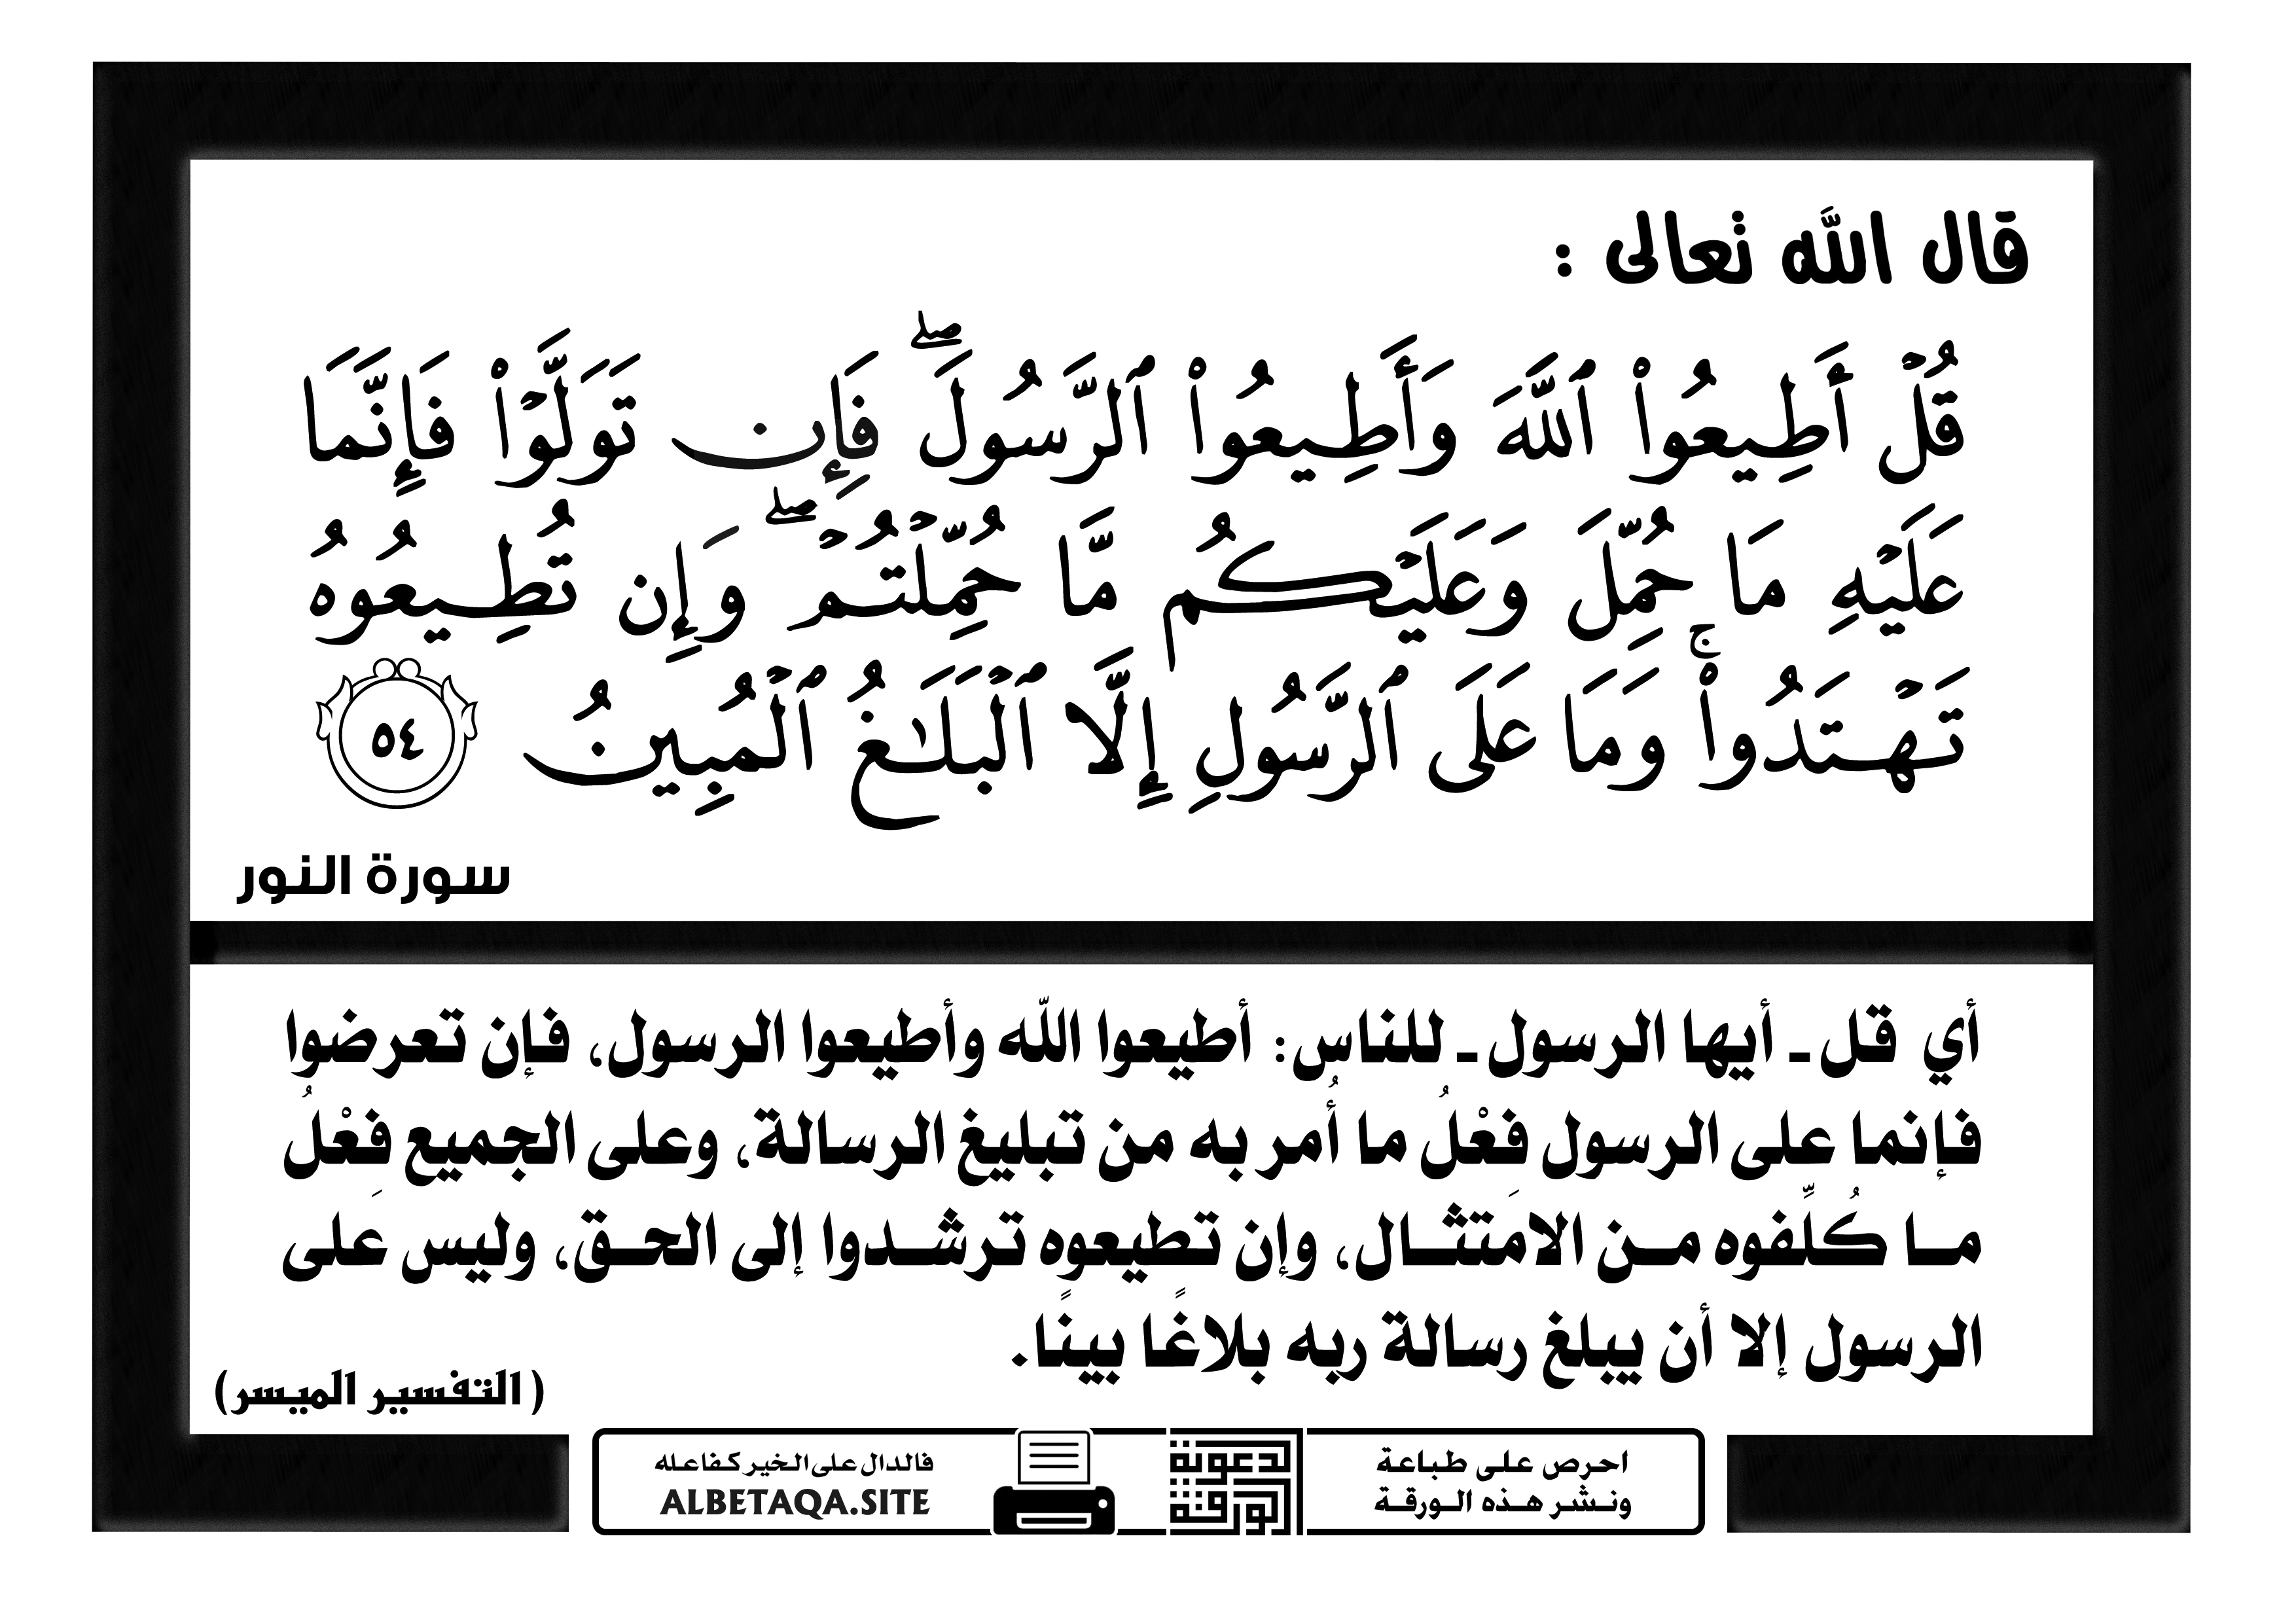 قال الله تعالى :
قُلۡ أَطِيعُواْ ٱللَّهَ وَأَطِيعُواْ ٱلرَّسُولَۖ فَإِن تَوَلَّوۡاْ فَإِنَّمَا
عَلَيۡهِ مَا حُمِّلَ وَعَلَيۡكُم مَّا حُمِّلۡتُمۡۖ وَإِن تُطِيعُوهُ
تَهۡتَدُواْۚ وَمَا عَلَى ٱلرَّسُولِ إِلَّا ٱلۡبَلَٰغُ ٱلۡمُبِينُ ٥٤
سورة النور
أي قل ـ أيها الرسول ـ للناس: أطيعوا الله وأطيعوا الرسول، فإن تعرضوا
فإنما على الرسول فعْلُ ما أُمر به من تبليغ الرسالة، وعلى الجميع فِعْلُ
ما كُلِّفوه من الامتثَال، وإن تطيعوه ترشدوا إلى الحق، وليس عَلى
الرسول إلا أن يبلغ رسالة ربه بلاغًا بينًا.
( التفسير الميسر)
احرص على طباعة
ونشر هذه الورقة
الدعوية
الورقة
فالدال على الخير كفاعله
ALBETAQA.SITE